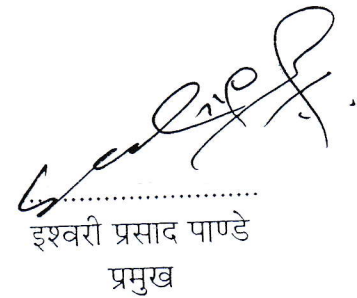 ................................
इश्वरी प्रसाद पाण्डे
प्रमुख